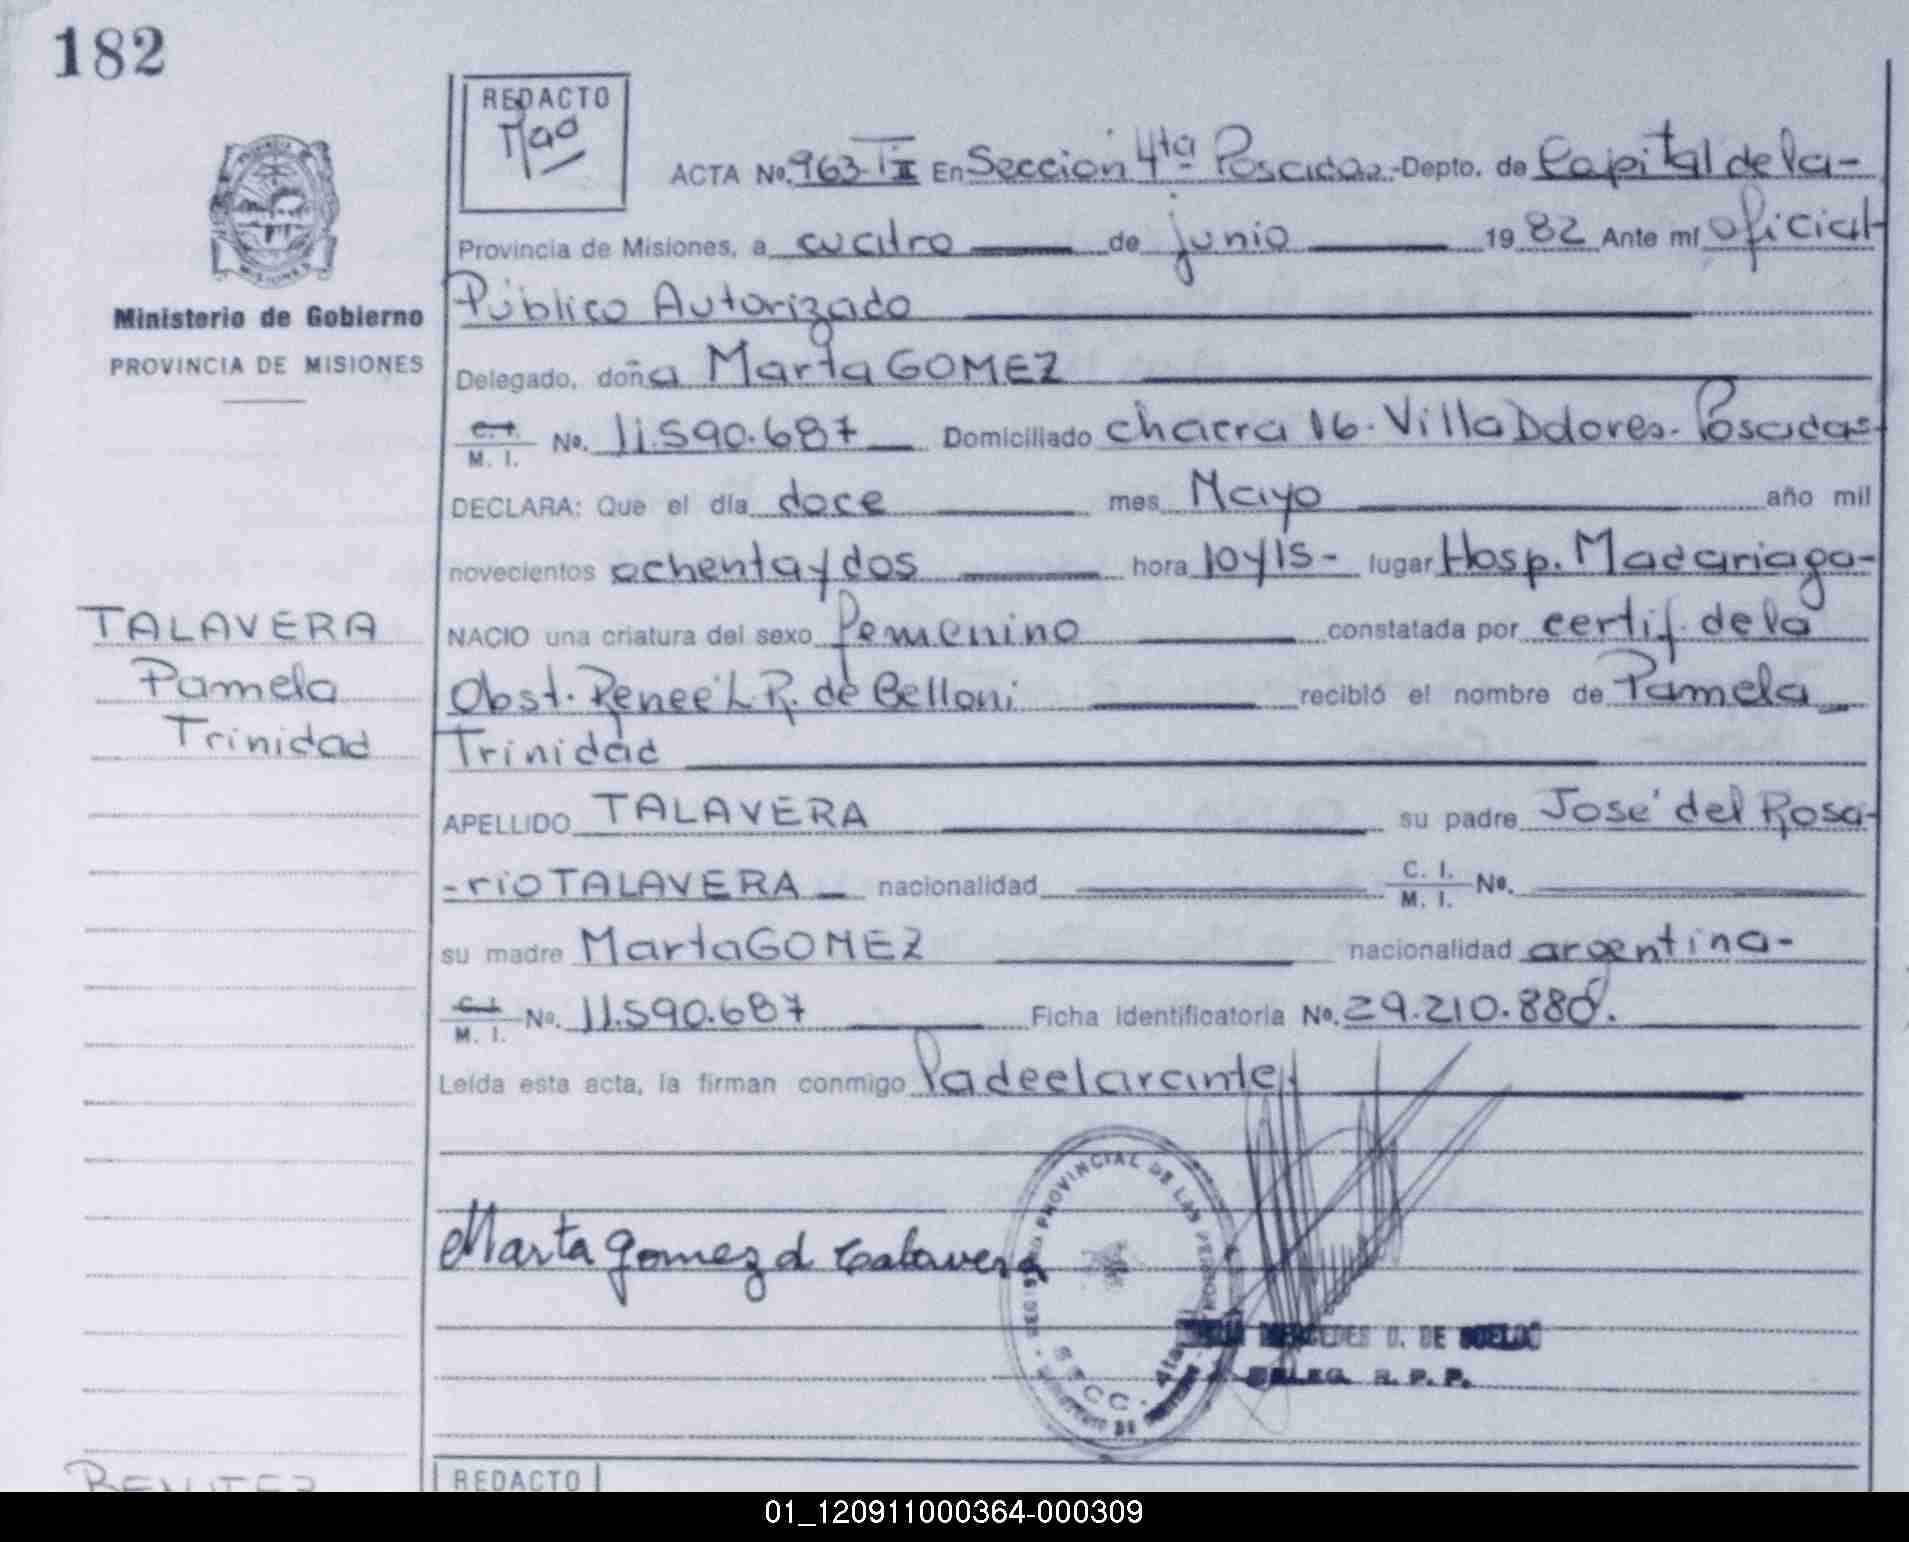 182
REDACTO
ACTA No. 963-TII En Sección 4ta Posadas.-Depto. de Capital de la-
Provincia de Misiones, a cuatro de junio 1982 Ante mí oficial
Ministerio de Gobierno
PROVINCIA DE MISIONES
Público Autorizado
Delegado, doña Marta GOMEZ
C.I. M. I. No. 11.590.687 Domiciliado chacra 16. Villa Dolores. Posadas
DECLARA: Que el día doce mes Mayo año mil
novecientos ochenta y dos hora 10y15- lugar Hosp. Madariaga-
TALAVERA
Pamela
Trinidad
NACIO una criatura del sexo femenino constatada por certif. de la
Obst. Reneé L.R. de Belloni recibió el nombre de Pamela
Trinidad
APELLIDO TALAVERA su padre José del Rosa-
-rio TALAVERA nacionalidad C. I. M. I. No.
su madre Marta GOMEZ nacionalidad argentina-
C.I. M. I. No. 11.590.687 Ficha identificatoria No. 29.210.880.
Leída esta acta, la firman conmigo la declarante
Marta Gomez d Talavera
PROVINCIAL DE LAS PERSONAS
SECC. 4ta
MERCEDES D. DE
DELEG. R. P. P.
BENITEZ
REDACTO
01_120911000364-000309